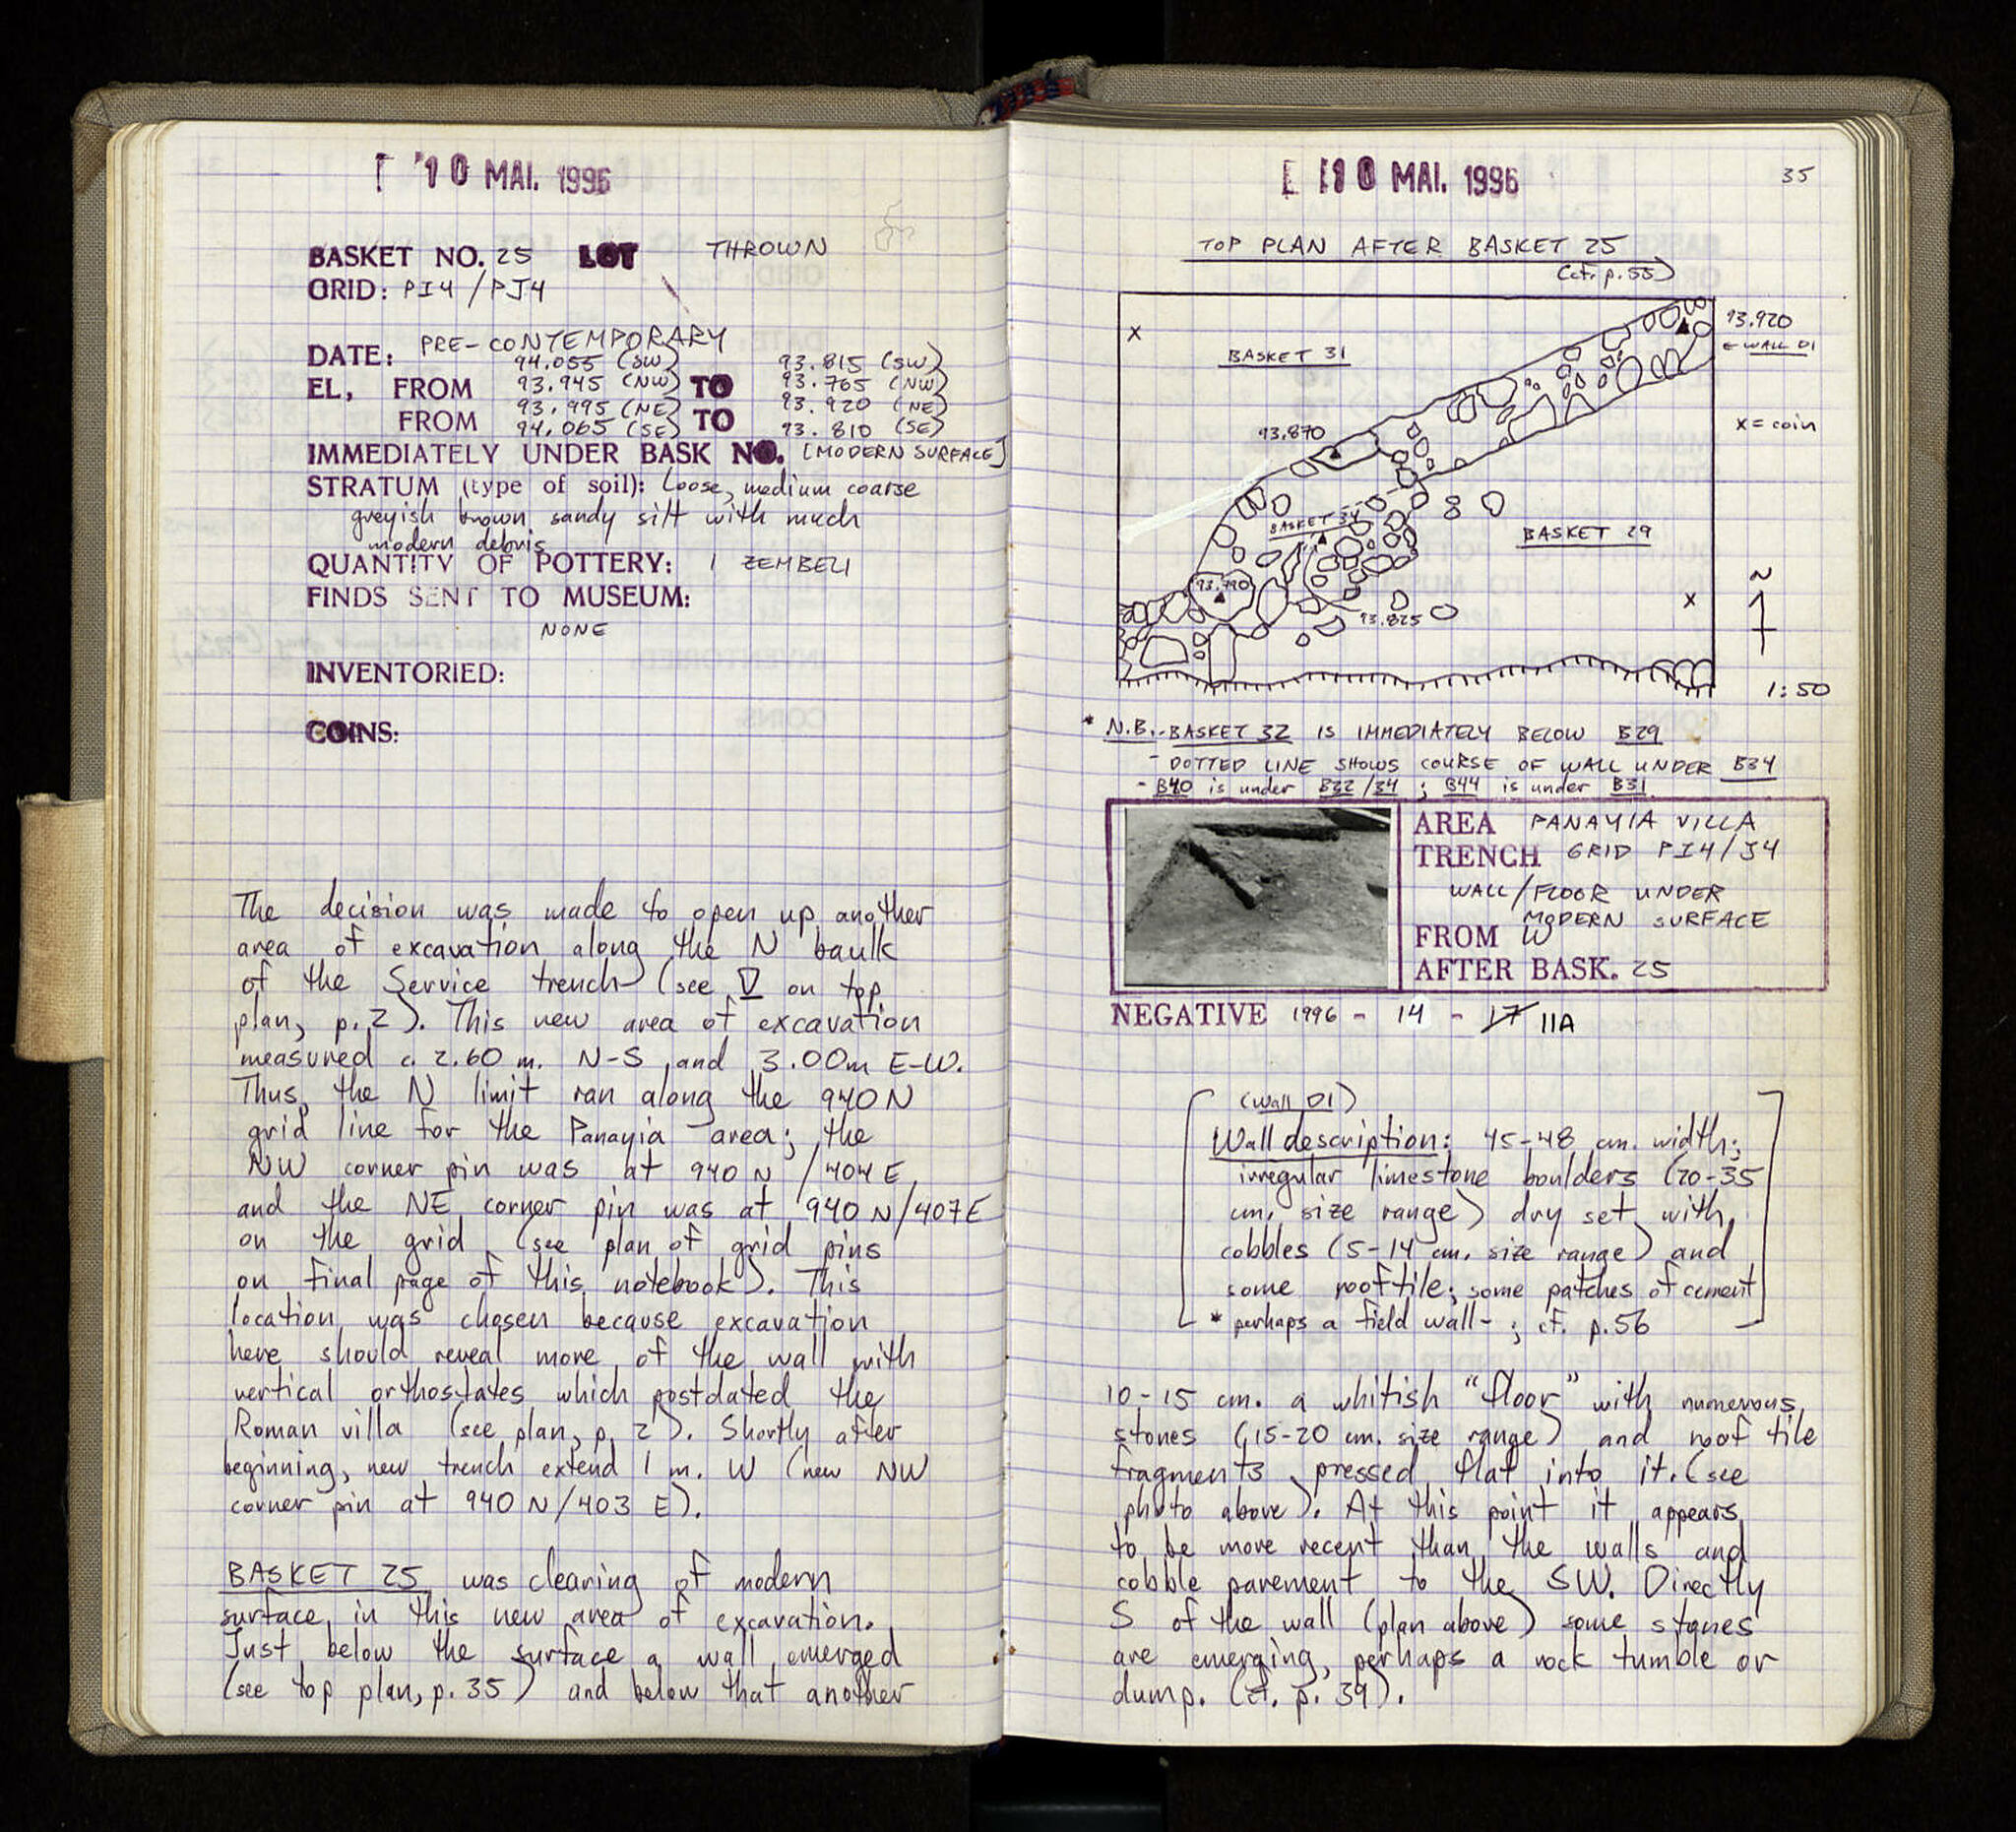 10 MAI. 1996
BASKET NO. 25 LOT THROWN
GRID: PI4/PJ4
DATE: PRE-CONTEMPORARY
94.055 (SW) 93.815 (SW)
EL, FROM 93.945 (NW) TO 93.765 (NW)
93.995 (NE) 93.920 (NE)
FROM 94.065 (SE) TO 93.810 (SE)
IMMEDIATELY UNDER BASK NO. [MODERN SURFACE]
STRATUM (type of soil): Loose, medium coarse
greyish brown sandy silt with much
modern debris
QUANTITY OF POTTERY: 1 ZEMBELI
FINDS SENT TO MUSEUM:
NONE
INVENTORIED:
COINS:
The decision was made to open up another
area of excavation along the N baulk
of the Service trench (see V on top
plan, p. 2). This new area of excavation
measured c. 2.60 m. N-S and 3.00m E-W.
Thus, the N limit ran along the 940 N
grid line for the Panayia area; the
NW corner pin was at 940 N/404 E
and the NE corner pin was at 940 N/407 E
on the grid (see plan of grid pins
on final page of this notebook). This
location was chosen because excavation
here should reveal more of the wall with
vertical orthostates which postdated the
Roman villa (see plan, p. 2). Shortly after
beginning, new trench extend 1 m. W (new NW
corner pin at 940 N/403 E).
BASKET 25 was clearing of modern
surface in this new area of excavation.
Just below the surface a wall emerged
(see top plan, p. 35) and below that another
10 MAI. 1996
35
TOP PLAN AFTER BASKET 25
(cf. p. 55)
x
BASKET 31
93.920
← WALL 01
x = coin
93.870
BASKET 34
BASKET 29
93.790
93.825
x
N
1:50
* N.B. - BASKET 32 IS IMMEDIATELY BELOW B29
- DOTTED LINE SHOWS COURSE OF WALL UNDER B34
- B40 is under B32/34; B44 is under B31
AREA PANAYIA VILLA
TRENCH GRID PI4/J4
WALL/FLOOR UNDER
MODERN SURFACE
FROM W
AFTER BASK. 25
NEGATIVE 1996 - 14 - 17 11A
(Wall 01)
Wall description: 45-48 cm. width;
irregular limestone boulders (20-35
cm. size range) dry set with
cobbles (5-14 cm. size range) and
some rooftile; some patches of cement
* perhaps a field wall - ; cf. p. 56
10-15 cm. a whitish "floor" with numerous
stones (15-20 cm. size range) and roof tile
fragments pressed flat into it. (see
photo above). At this point it appears
to be more recent than the walls and
cobble pavement to the SW. Directly
S of the wall (plan above) some stones
are emerging, perhaps a rock tumble or
dump. (cf. p. 39).